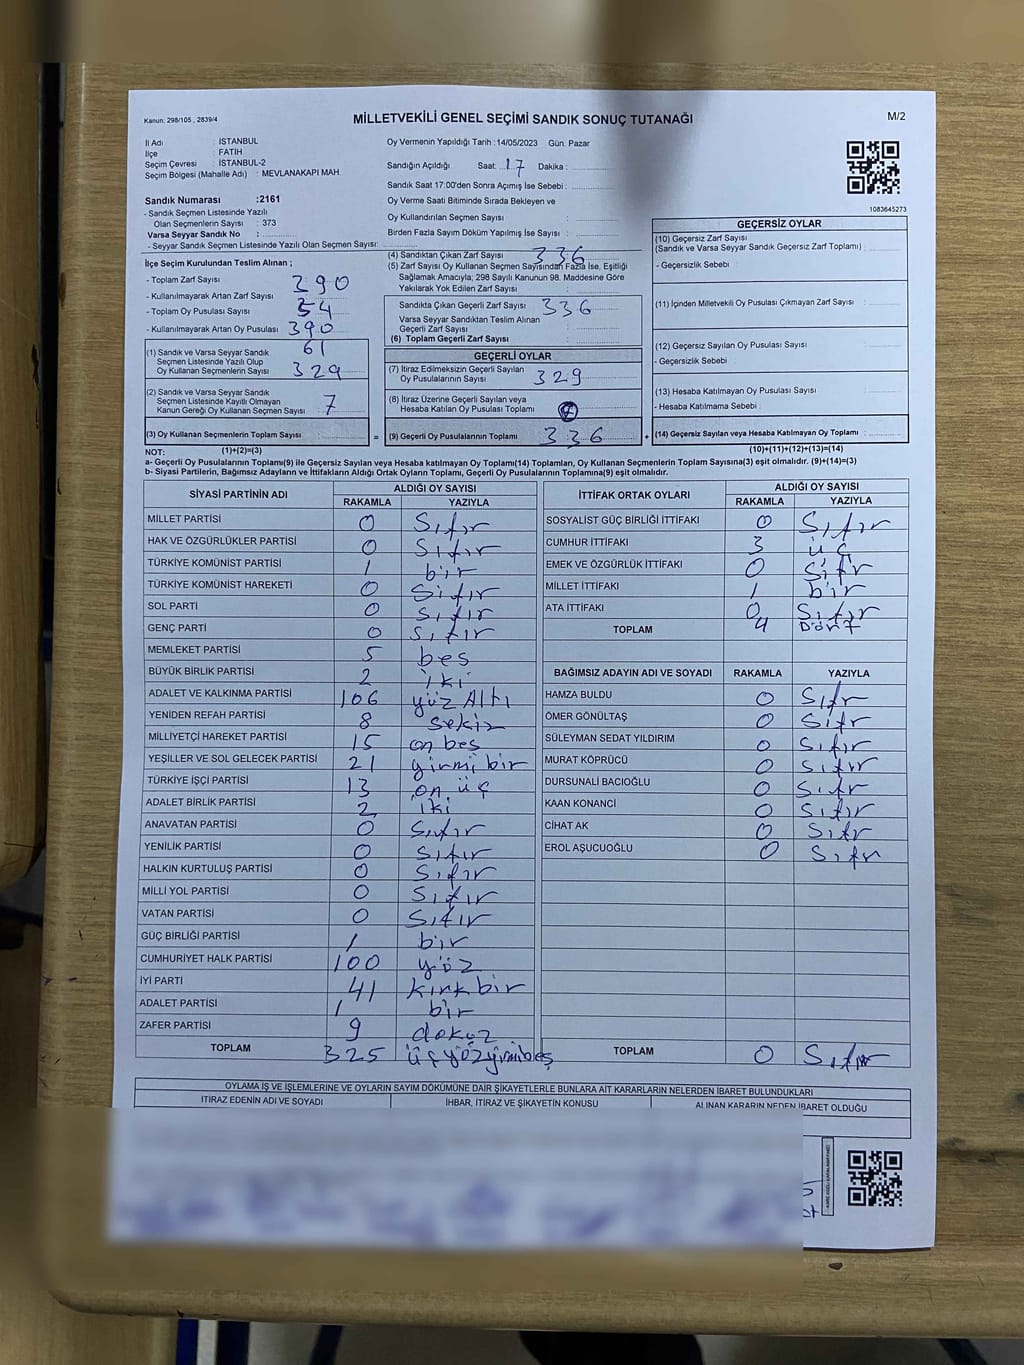 Kanun: 298/105 , 2839/4
MİLLETVEKİLİ GENEL SEÇİMİ SANDIK SONUÇ TUTANAĞI
M/2
İl Adı : İSTANBUL
İlçe : FATİH
Seçim Çevresi : İSTANBUL-2
Seçim Bölgesi (Mahalle Adı) : MEVLANAKAPI MAH.
Sandık Numarası :2161
- Sandık Seçmen Listesinde Yazılı
Olan Seçmenlerin Sayısı : 373
Varsa Seyyar Sandık No :
- Seyyar Sandık Seçmen Listesinde Yazılı Olan Seçmen Sayısı:
Oy Vermenin Yapıldığı Tarih :14/05/2023 Gün: Pazar
Sandığın Açıldığı Saat: 17 Dakika :
Sandık Saat 17:00'den Sonra Açımış İse Sebebi :
Oy Verme Saati Bitiminde Sırada Bekleyen ve
Oy Kullandırılan Seçmen Sayısı :
Birden Fazla Sayım Döküm Yapılmış İse Sayısı :
1083645273
İlçe Seçim Kurulundan Teslim Alınan ;
- Toplam Zarf Sayısı : 390
- Kullanılmayarak Artan Zarf Sayısı : 54
- Toplam Oy Pusulası Sayısı : 390
- Kullanılmayarak Artan Oy Pusulası : 61
(1) Sandık ve Varsa Seyyar Sandık
Seçmen Listesinde Yazılı Olup
Oy Kullanan Seçmenlerin Sayısı : 329
(2) Sandık ve Varsa Seyyar Sandık
Seçmen Listesinde Kayıtlı Olmayan
Kanun Gereği Oy Kullanan Seçmen Sayısı : 7
(3) Oy Kullanan Seçmenlerin Toplam Sayısı :
(4) Sandıktan Çıkan Zarf Sayısı : 336
(5) Zarf Sayısı Oy Kullanan Seçmen Sayısından Fazla İse, Eşitliği
Sağlamak Amacıyla; 298 Sayılı Kanunun 98. Maddesine Göre
Yakılarak Yok Edilen Zarf Sayısı :
Sandıkta Çıkan Geçerli Zarf Sayısı : 336
Varsa Seyyar Sandıktan Teslim Alınan
Geçerli Zarf Sayısı :
(6) Toplam Geçerli Zarf Sayısı :
GEÇERLİ OYLAR
(7) İtiraz Edilmeksizin Geçerli Sayılan
Oy Pusulalarının Sayısı : 329
(8) İtiraz Üzerine Geçerli Sayılan veya
Hesaba Katılan Oy Pusulası Toplamı :
= (9) Geçerli Oy Pusulalarının Toplamı : 336
GEÇERSİZ OYLAR
(10) Geçersiz Zarf Sayısı
(Sandık ve Varsa Seyyar Sandık Geçersiz Zarf Toplamı) :
- Geçersizlik Sebebi :
(11) İçinden Milletvekili Oy Pusulası Çıkmayan Zarf Sayısı :
(12) Geçersiz Sayılan Oy Pusulası Sayısı :
- Geçersizlik Sebebi :
(13) Hesaba Katılmayan Oy Pusulası Sayısı :
- Hesaba Katılmama Sebebi :
+ (14) Geçersiz Sayılan veya Hesaba Katılmayan Oy Toplamı :
NOT: (1)+(2)=(3) (10)+(11)+(12)+(13)=(14)
a- Geçerli Oy Pusulalarının Toplamı(9) ile Geçersiz Sayılan veya Hesaba katılmayan Oy Toplamı(14) Toplamları, Oy Kullanan Seçmenlerin Toplam Sayısına(3) eşit olmalıdır. (9)+(14)=(3)
b- Siyasi Partilerin, Bağımsız Adayların ve İttifakların Aldığı Ortak Oyların Toplamı, Geçerli Oy Pusulalarının Toplamına(9) eşit olmalıdır.
SİYASİ PARTİNİN ADI ALDIĞI OY SAYISI
RAKAMLA YAZIYLA
MİLLET PARTİSİ 0 Sıfır
HAK VE ÖZGÜRLÜKLER PARTİSİ 0 Sıfır
TÜRKİYE KOMÜNİST PARTİSİ 1 bir
TÜRKİYE KOMÜNİST HAREKETİ 0 Sıfır
SOL PARTİ 0 Sıfır
GENÇ PARTİ 0 Sıfır
MEMLEKET PARTİSİ 5 beş
BÜYÜK BİRLİK PARTİSİ 2 iki
ADALET VE KALKINMA PARTİSİ 106 yüz Altı
YENİDEN REFAH PARTİSİ 8 sekiz
MİLLİYETÇİ HAREKET PARTİSİ 15 on beş
YEŞİLLER VE SOL GELECEK PARTİSİ 21 yirmi bir
TÜRKİYE İŞÇİ PARTİSİ 13 on üç
ADALET BİRLİK PARTİSİ 2 iki
ANAVATAN PARTİSİ 0 Sıfır
YENİLİK PARTİSİ 0 Sıfır
HALKIN KURTULUŞ PARTİSİ 0 Sıfır
MİLLİ YOL PARTİSİ 0 Sıfır
VATAN PARTİSİ 0 Sıfır
GÜÇ BİRLİĞİ PARTİSİ 1 bir
CUMHURİYET HALK PARTİSİ 100 yüz
İYİ PARTİ 41 kırk bir
ADALET PARTİSİ 1 bir
ZAFER PARTİSİ 9 dokuz
TOPLAM 325 üçyüzyirmibeş
İTTİFAK ORTAK OYLARI ALDIĞI OY SAYISI
RAKAMLA YAZIYLA
SOSYALİST GÜÇ BİRLİĞİ İTTİFAKI 0 Sıfır
CUMHUR İTTİFAKI 3 üç
EMEK VE ÖZGÜRLÜK İTTİFAKI 0 Sıfır
MİLLET İTTİFAKI 1 bir
ATA İTTİFAKI 0 Sıfır
TOPLAM 4 Dört
BAĞIMSIZ ADAYIN ADI VE SOYADI RAKAMLA YAZIYLA
HAMZA BULDU 0 Sıfır
ÖMER GÖNÜLTAŞ 0 Sıfır
SÜLEYMAN SEDAT YILDIRIM 0 Sıfır
MURAT KÖPRÜCÜ 0 Sıfır
DURSUNALİ BACIOĞLU 0 Sıfır
KAAN KONANCİ 0 Sıfır
CİHAT AK 0 Sıfır
EROL AŞUCUOĞLU 0 Sıfır
TOPLAM 0 Sıfır
OYLAMA İŞ VE İŞLEMLERİNE VE OYLARIN SAYIM DÖKÜMÜNE DAİR ŞİKAYETLERLE BUNLARA AİT KARARLARIN NELERDEN İBARET BULUNDUKLARI
İTİRAZ EDENİN ADI VE SOYADI İHBAR, İTİRAZ VE ŞİKAYETİN KONUSU ALINAN KARARIN NEDEN İBARET OLDUĞU